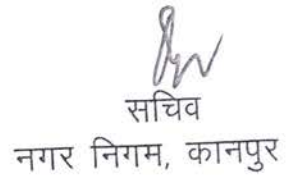 सचिव
नगर निगम, कानपुर